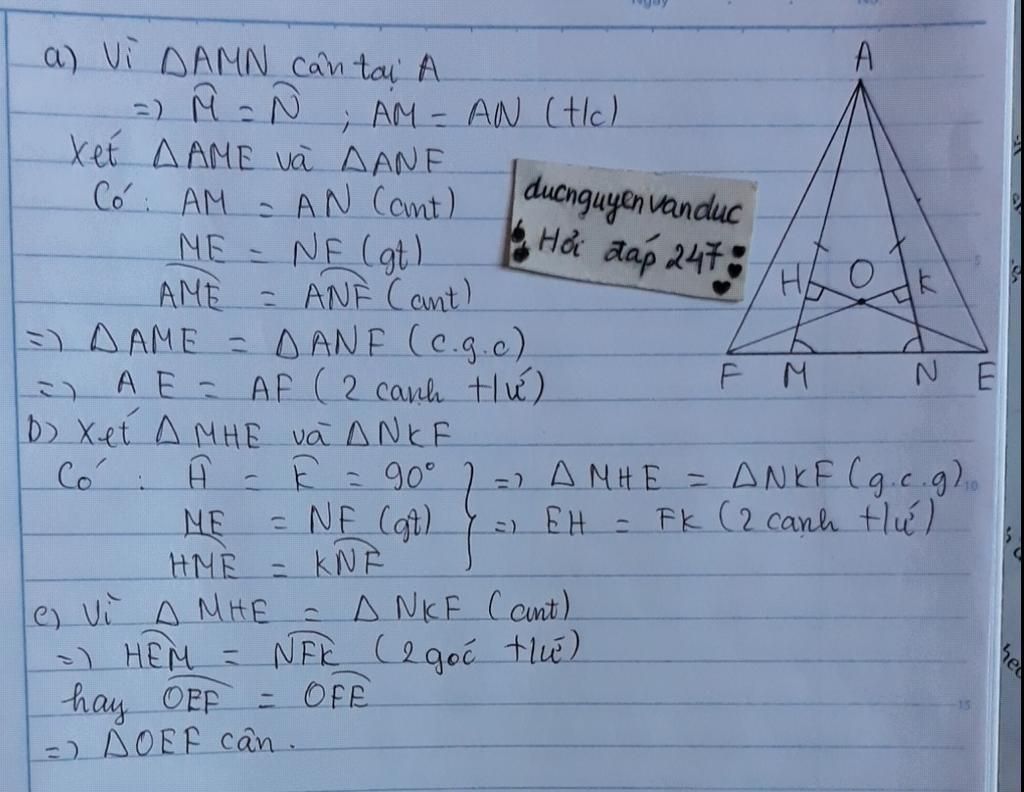 a) Vì ΔAMN cân tại A
=> M̂ = N̂ ; AM = AN (t/c)
Xét ΔAME và ΔANF
Có: AM = AN (cmt)
ME = NF (gt)
AME = ANF (cmt)
=> ΔAME = ΔANF (c.g.c)
=> AE = AF (2 cạnh t/ứ)
b) Xét ΔMHE và ΔNKF
Có : Ĥ = K̂ = 90°
ME = NF (gt)
HME = KNF
} => ΔMHE = ΔNKF (g.c.g)
=> EH = FK (2 cạnh t/ứ)
c) Vì ΔMHE = ΔNKF (cmt)
=> HEM = NFK (2 góc t/ứ)
hay OEF = OFE
=> ΔOEF cân.
ducnguyenvanduc
Hỏi đáp 247
A
H O K
F M N E
5
10
15